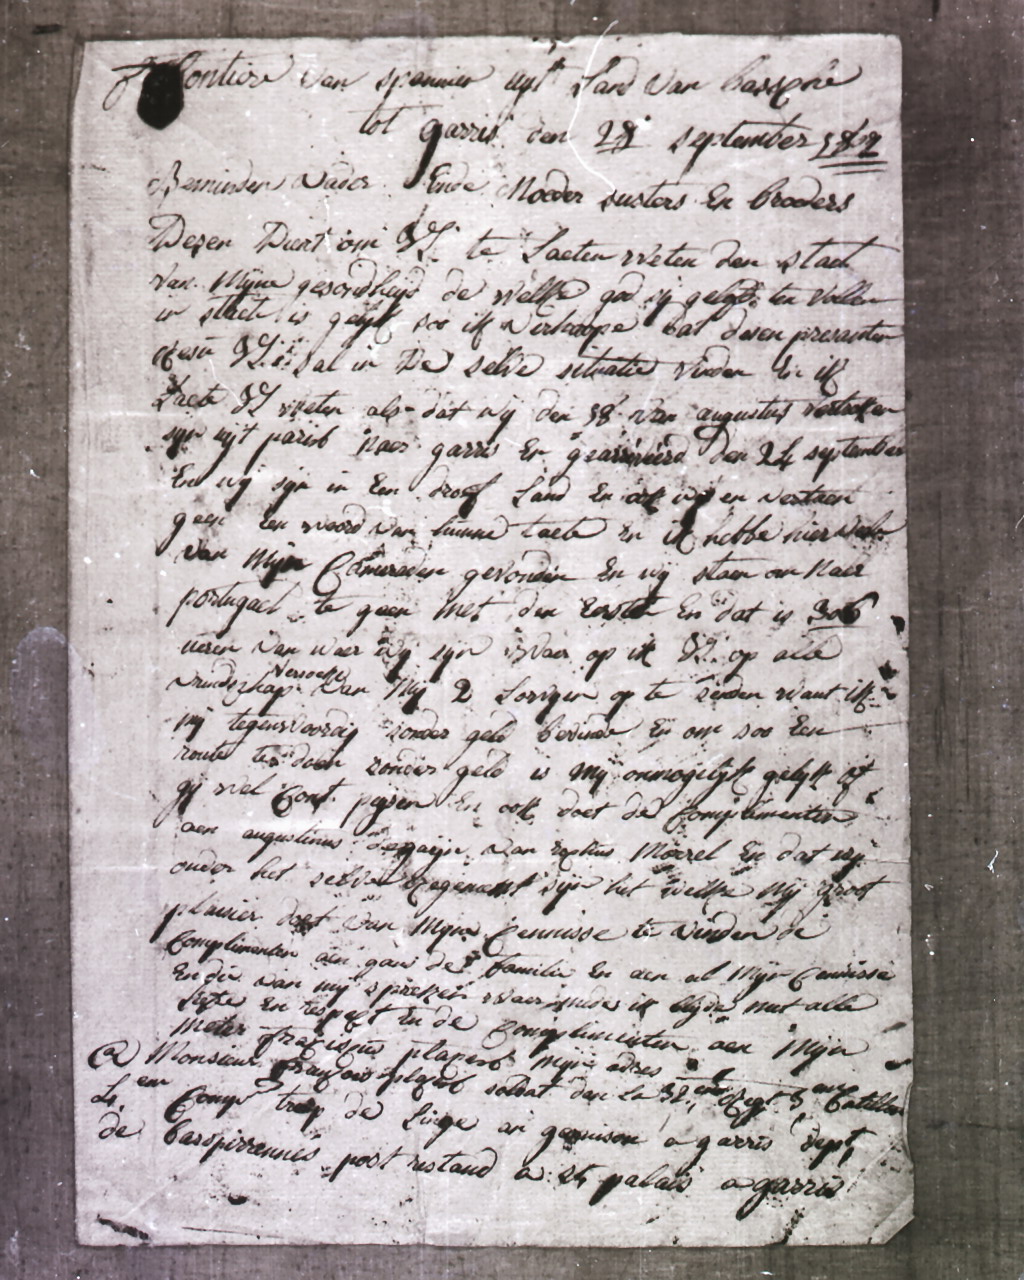 frontiere van spannien uyt Land van basspiré
tot garris den 28 september 1812
Beminden vader Ende Moeder susters En broeders
Desen Dient om UL te Laeten weten den staet
van Mijne gesondheijd de welke god sij geloft ten vollen
in staet is gelijk soo ik verhoope dat desen presenten
UL sal in De selve situatie vinden En ik
Laete UL weten als dat wij den 18 van augustus vertrokken
sijn uijt parijs naer garris En gearriveerd den 24 september
En wij sijn in Een droef Land En ook wij en verstaen
geen Een woord van hunne taele En ik hebbe hier vele
van Mijn Cameraden gevonden En wij staen om Naer
portugael te gaen Met den Eersten En dat is 306
ueren van waer wij sijn Waer op ik UL op alle
vrindschap versoeke van Mij 2 Lowijzen op te senden want ik
mij tegenwoordig zonder geld bevinde En om soo Een
route te doen zonder geld is Mij onmogelijk gelijk
gij wel Cont pijsen En ook doet de Complimenten
aen augustinus van Morrel En dat wij
onder het selve Regement sijn het welke Mij groot
plaisier doet van Mijne Cennisse te vinden de
Complimenten aen gans de familie En aen al Mijn Cennisse
En die van mij spreken waer mede ik blijve met alle
liefde En respect En de Complimenten aen Mijn
Meter franciscus plapers Mijn adres
a Monsieur françois soldat dan La 32 eme Regt 3 eme batillon
4 em Comp treup de Linge in garnison a garris dept
de basspirrennés post restand a st palais a garris